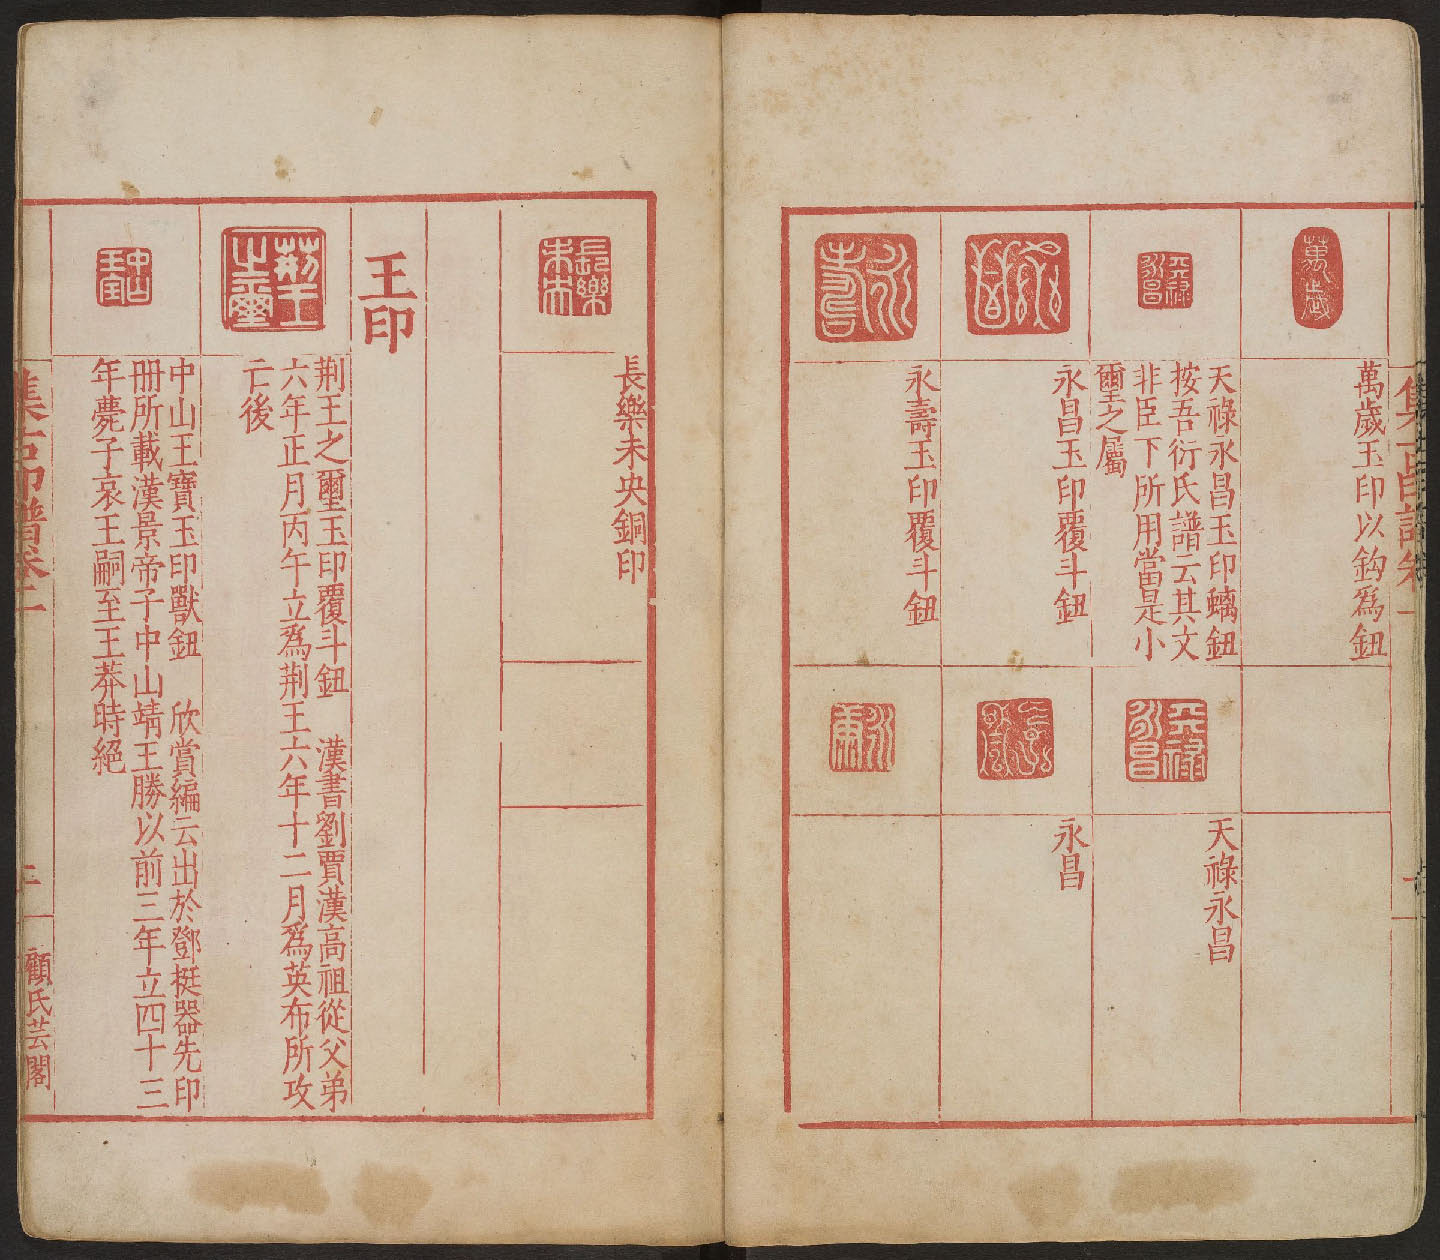 萬歲
萬歲玉印以鈎爲鈕
天祿永昌
天祿永昌玉印螭鈕
按吾衍氏譜云其文
非臣下所用當是小
璽之屬
永昌玉印覆斗鈕
永壽
永壽玉印覆斗鈕
天祿永昌
天祿永昌
永昌
永康
長樂未央
長樂未央銅印
王印
荆王之璽
荆王之璽玉印覆斗鈕 漢書劉賈漢高祖從父弟
六年正月丙午立爲荆王六年十二月爲英布所攻
亡後
中山王寶
中山王寶玉印獸鈕 欣賞編云出於鄧挺器先印
冊所載漢景帝子中山靖王勝以前三年立四十三
年薨子哀王嗣至王莽時絕
集古印譜卷二
二
顧氏芸閣